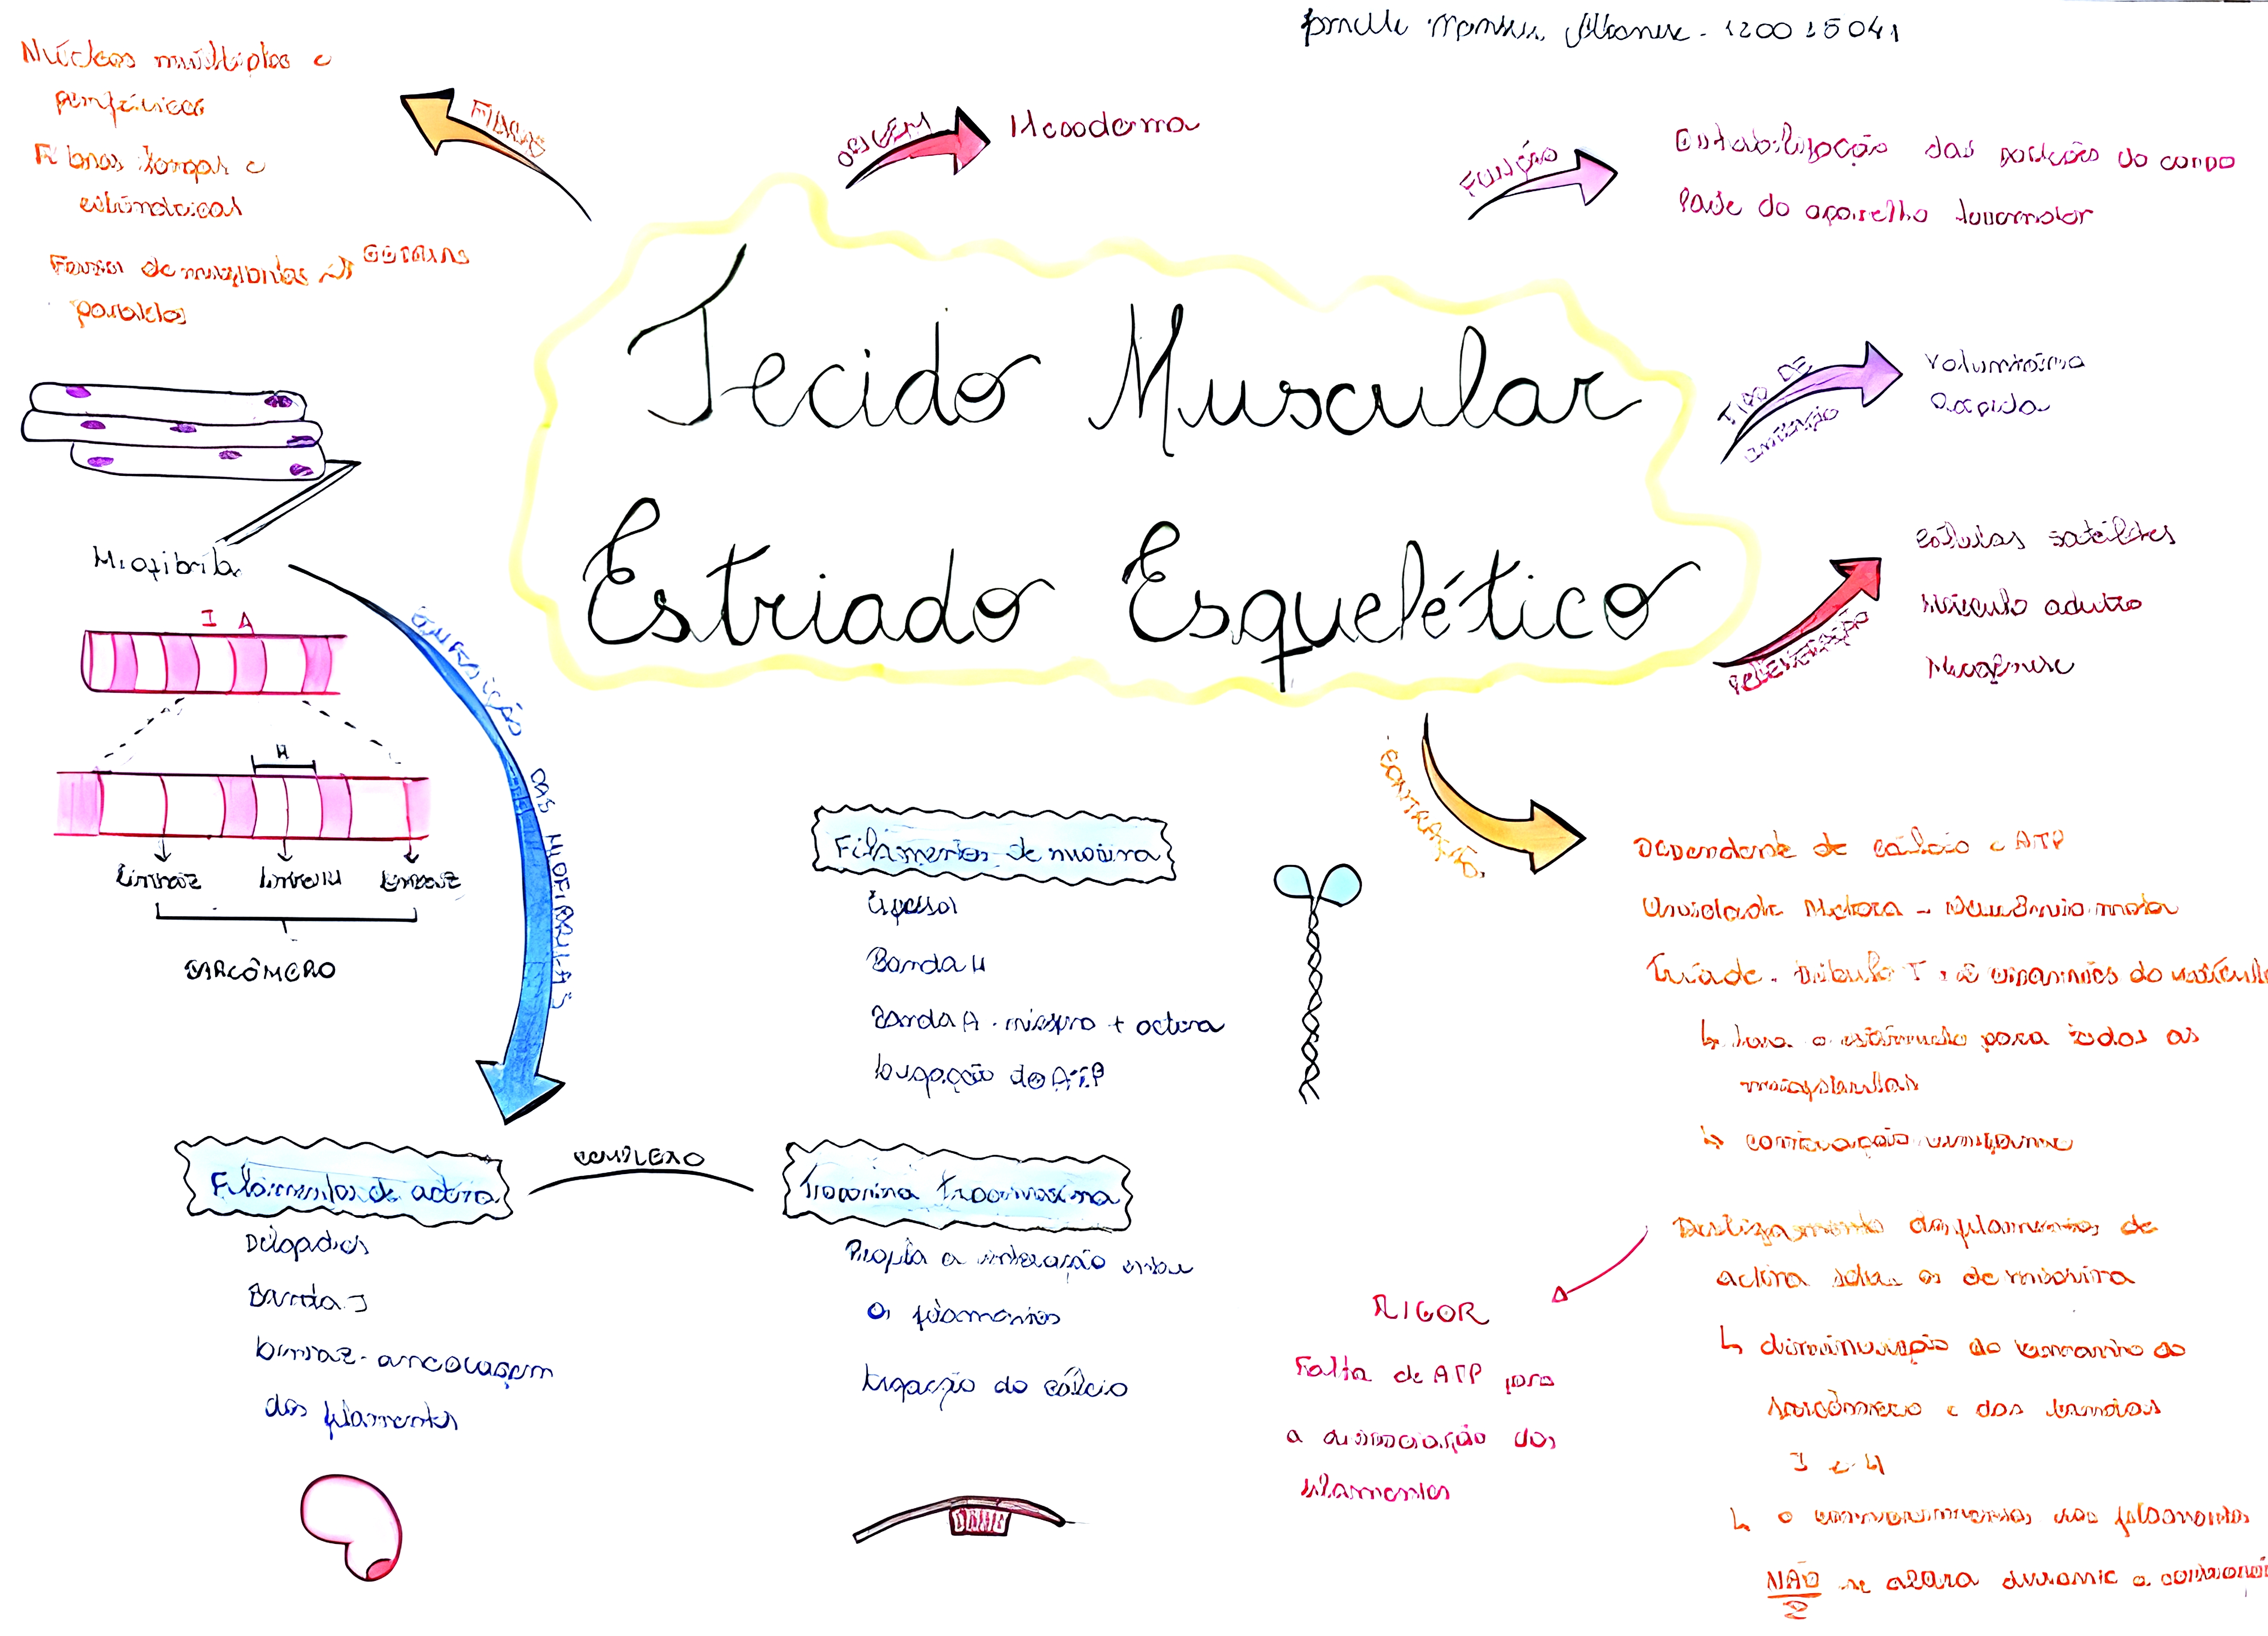 120015041
Núcleos múltiplos e
periféricos
FIBRAS
Fibras longas e
cilíndricas
Feixes de miofibrilas
paralelos
ORIGEM
Mesoderma
FUNÇÃO
Estabilização das posições do corpo
Parte do aparelho locomotor
Tecido Muscular
Estriado Esquelético
TIPO DE
contração
Voluntária
Rápida
REGENERAÇÃO
Células satélites
Músculo adulto
Miofibrila
I A
H
Linha Z Linha M Linha Z
SARCÔMERO
DAS MIOFIBRILAS
Filamentos de miosina
Espessos
Banda H
Banda A - miosina + actina
Ligação do ATP
Filamentos de actina
COMPLEXO
Troponina tropomiosina
Delgados
Banda I
Linha Z - ancoragem
dos filamentos
a interação entre
os filamentos
Ligação do cálcio
CONTRAÇÃO
Dependente de cálcio e ATP
Unidade Motora - Neurônio motor
Tríade - Túbulo T + 2 do retículo
↳ leva o estímulo para todas as
miofibrilas
↳ contração uniforme
Deslizamento dos filamentos de
actina sobre os de miosina
↳ diminuição do tamanho do
sarcômero e das bandas
I e H
↳ o comprimento dos filamentos
NÃO se altera durante a contração
RIGOR
Falta de ATP para
a dissociação dos
filamentos